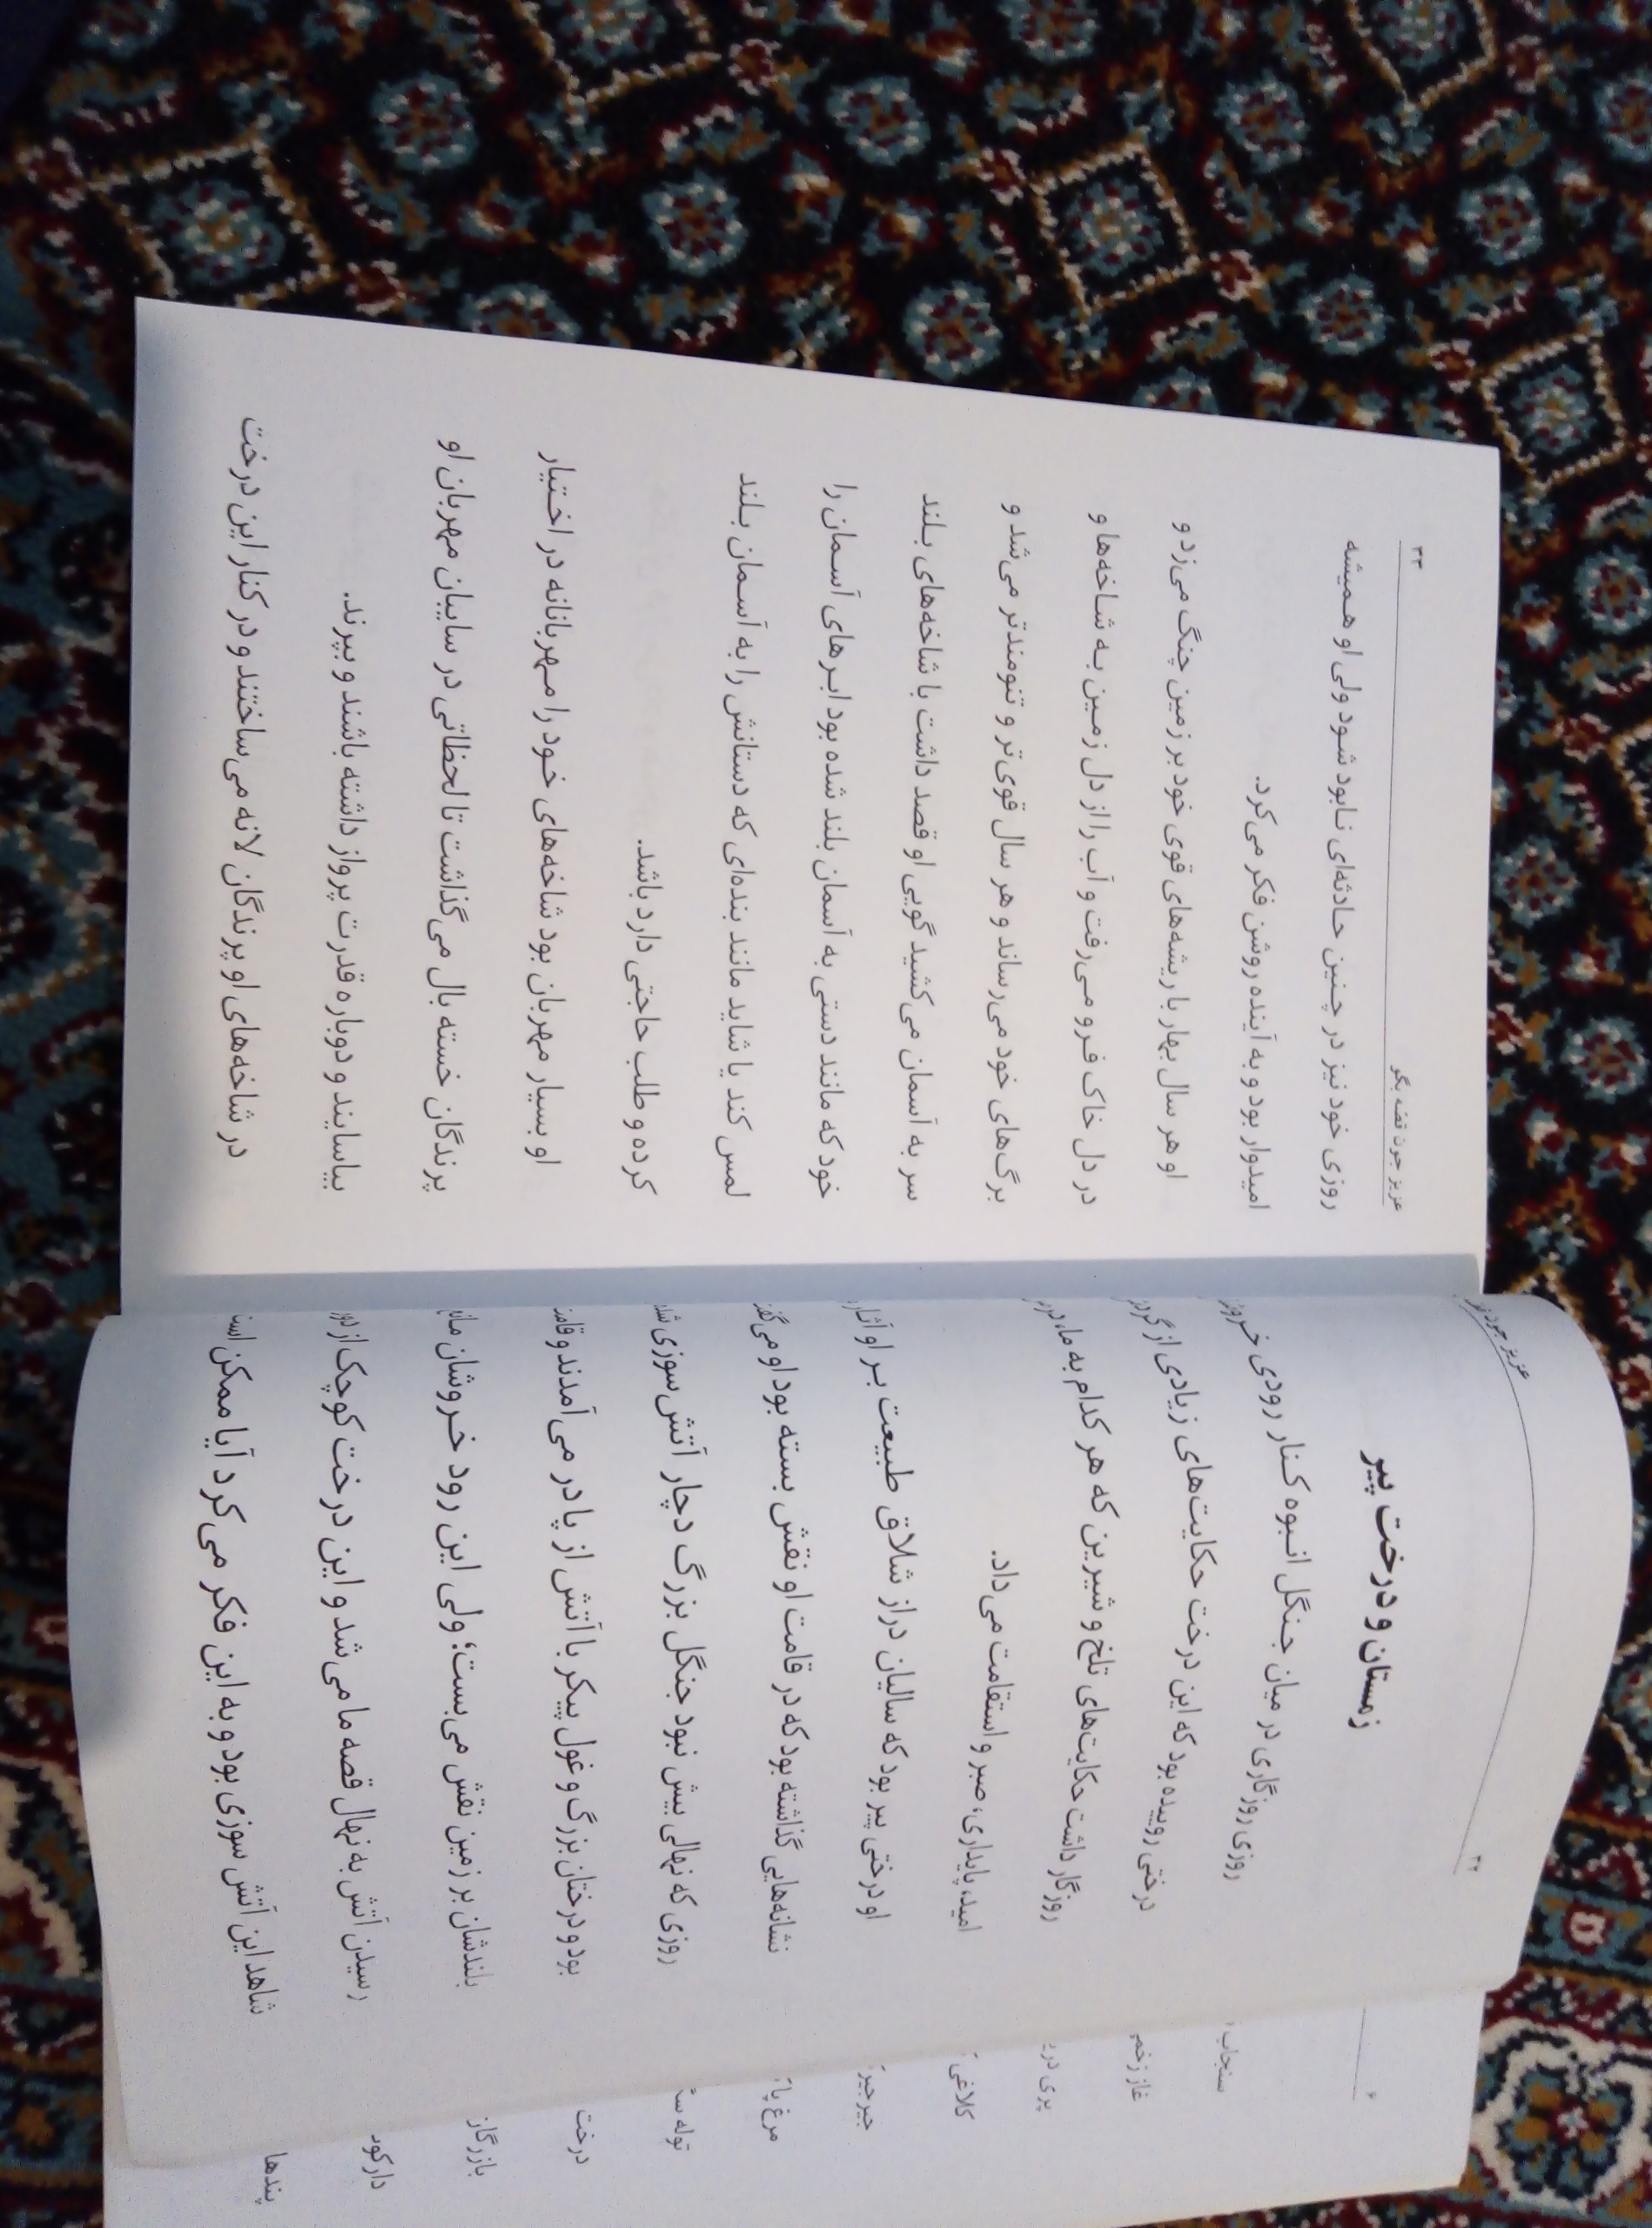 ۳۲
عزیز جون
زمستان و درخت پیر
روزی روزگاری در میان جنگل انبوه کنار رودی
درختی روییده بود که این درخت حکایت‌های زیادی از
روزگار داشت حکایت‌های تلخ و شیرین که هر کدام به ما،
امید، پایداری، صبر و استقامت می‌داد.
او درختی پیر بود که سالیان دراز شلاق طبیعت بر او آثار
نشانه‌هایی گذاشته بود که در قامت او نقش بسته بود او
روزی که نهالی بیش نبود جنگل بزرگ دچار آتش سوزی
بود و درختان بزرگ و غول پیکر با آتش از پا در می‌آمدند و
بلندشان بر زمین نقش می‌بست؛ ولی این رود خروشان
رسیدن آتش به نهال قصه ما می‌شد و این درخت کوچک از دور
شاهد این آتش سوزی بود و به این فکر می‌کرد آیا ممکن
عزیز جون قصه بگو
۳۳
روزی خود نیز در چنین حادثه‌ای نابود شود ولی او همیشه
امیدوار بود و به آینده روشن فکر می‌کرد.
او هر سال بهار با ریشه‌های قوی خود بر زمین چنگ می‌زد و
در دل خاک فرو می‌رفت و آب را از دل زمین به شاخه‌ها و
برگ‌های خود می‌رساند و هر سال قوی‌تر و تنومندتر می‌شد و
سر به آسمان می‌کشید گویی او قصد داشت با شاخه‌های بلند
خود که مانند دستی به آسمان بلند شده بود ابرهای آسمان را
لمس کند یا شاید مانند بنده‌ای که دستانش را به آسمان بلند
کرده و طلب حاجتی دارد باشد.
او بسیار مهربان بود شاخه‌های خود را مهربانانه در اختیار
پرندگان خسته بال می‌گذاشت تا لحظاتی در سایبان مهربان او
بیاسایند و دوباره قدرت پرواز داشته باشند و بپرند.
در شاخه‌های او پرندگان لانه می‌ساختند و در کنار این درخت
۶
سنجاب
غاز زخمی
پری
کلاغی
جیرجیر
مرغ
توله
درخت
بازرگان
دارکوب
پندها